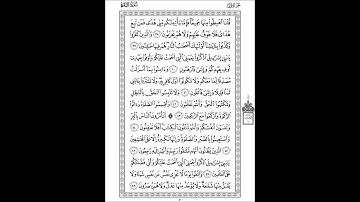 قُلْنَا ٱهْبِطُوا۟ مِنْهَا جَمِيعًا فَإِمَّا يَأْتِيَنَّكُم مِّنِّى هُدًى فَمَن تَبِعَ
هُدَاىَ فَلَا خَوْفٌ عَلَيْهِمْ وَلَا هُمْ يَحْزَنُونَ ٣٨ وَٱلَّذِينَ كَفَرُوا۟
وَكَذَّبُوا۟ بِـَٔايَـٰتِنَآ أُو۟لَـٰٓئِكَ أَصْحَـٰبُ ٱلنَّارِ هُمْ فِيهَا خَـٰلِدُونَ ٣٩
يَـٰبَنِىٓ إِسْرَٰٓءِيلَ ٱذْكُرُوا۟ نِعْمَتِىَ ٱلَّتِىٓ أَنْعَمْتُ عَلَيْكُمْ وَأَوْفُوا۟
بِعَهْدِىٓ أُوفِ بِعَهْدِكُمْ وَإِيَّـٰىَ فَٱرْهَبُونِ ٤٠ وَءَامِنُوا۟ بِمَآ أَنزَلْتُ
مُصَدِّقًا لِّمَا مَعَكُمْ وَلَا تَكُونُوٓا۟ أَوَّلَ كَافِرٍۭ بِهِۦ وَلَا تَشْتَرُوا۟
بِـَٔايَـٰتِى ثَمَنًا قَلِيلًا وَإِيَّـٰىَ فَٱتَّقُونِ ٤١ وَلَا تَلْبِسُوا۟ ٱلْحَقَّ بِٱلْبَـٰطِلِ
وَتَكْتُمُوا۟ ٱلْحَقَّ وَأَنتُمْ تَعْلَمُونَ ٤٢ وَأَقِيمُوا۟ ٱلصَّلَوٰةَ وَءَاتُوا۟
ٱلزَّكَوٰةَ وَٱرْكَعُوا۟ مَعَ ٱلرَّٰكِعِينَ ٤٣ ۞ أَتَأْمُرُونَ ٱلنَّاسَ بِٱلْبِرِّ
وَتَنسَوْنَ أَنفُسَكُمْ وَأَنتُمْ تَتْلُونَ ٱلْكِتَـٰبَ أَفَلَا تَعْقِلُونَ ٤٤
وَٱسْتَعِينُوا۟ بِٱلصَّبْرِ وَٱلصَّلَوٰةِ وَإِنَّهَا لَكَبِيرَةٌ إِلَّا عَلَى ٱلْخَـٰشِعِينَ
٤٥ ٱلَّذِينَ يَظُنُّونَ أَنَّهُم مُّلَـٰقُوا۟ رَبِّهِمْ وَأَنَّهُمْ إِلَيْهِ رَٰجِعُونَ ٤٦
يَـٰبَنِىٓ إِسْرَٰٓءِيلَ ٱذْكُرُوا۟ نِعْمَتِىَ ٱلَّتِىٓ أَنْعَمْتُ عَلَيْكُمْ وَأَنِّى فَضَّلْتُكُمْ
عَلَى ٱلْعَـٰلَمِينَ ٤٧ وَٱتَّقُوا۟ يَوْمًا لَّا تَجْزِى نَفْسٌ عَن نَّفْسٍ شَيْـًٔا وَلَا
يُقْبَلُ مِنْهَا شَفَـٰعَةٌ وَلَا يُؤْخَذُ مِنْهَا عَدْلٌ وَلَا هُمْ يُنصَرُونَ ٤٨